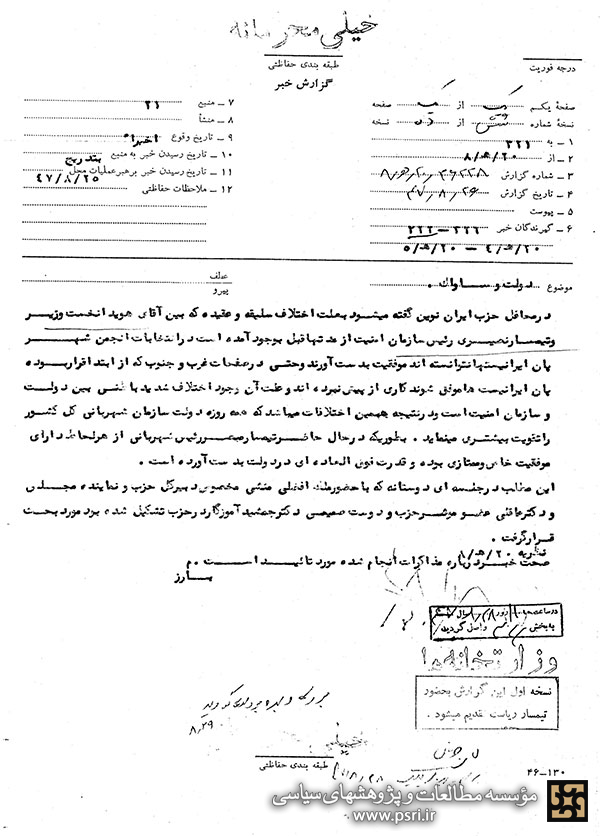 خیلی محرمانه
طبقه بندی حفاظتی
درجه فوریت
گزارش خبر
صفحهٔ یکم یک از یک صفحه
نسخهٔ شماره شش از ده نسخه
۱ ــ به ۳۴۱
۲ ــ از ۲۰ / هـ / ۸
۳ ــ شماره گزارش
۴ ــ تاریخ گزارش ۴۷/۸/۲۶
۵ ــ پیوست
۶ ــ گیرندگان خبر
۲۰ / هـ / ۴ ــ ۲۰ / هـ / ۵
۷ ــ منبع ۲۱
۸ ــ منشأ
۹ ــ تاریخ وقوع اخیراً
۱۰ ــ تاریخ رسیدن خبر به منبع بتدریج
۱۱ ــ تاریخ رسیدن خبر برهبر عملیات محل ۴۷/۸/۲۵
۱۲ ــ ملاحظات حفاظتی
موضوع دولت و ساواک .
عطف
پیرو
در محافل حزب ایران نوین گفته میشود بعلت اختلاف سلیقه و عقیده که بین آقای هویدا نخست وزیر
و تیمسار نصیری رئیس سازمان امنیت از مدتها قبل بوجود آمده است در انتخابات انجمن شهر
پان ایرانیستها نتوانسته اند موفقیت بدست آورند وحتی در صفحات غرب و جنوب که از ابتدا قرار بوده
پان ایرانیست ها موفق شوند کاری از پیش نبرده اند و علت آن وجود اختلاف شدید باطنی بین دولت
و سازمان امنیت است و در نتیجه همین اختلافات میباشد که همه روزه دولت سازمان شهربانی کل کشور
را تقویت بیشتری مینماید . بطوریکه در حال حاضر تیمسار مبصر رئیس شهربانی از هر لحاظ دارای
موفقیت خاص و ممتازی بوده و قدرت فوق العاده ای در دولت بدست آورده است .
این مطالب در جلسه ای دوستانه که با حضور ملک افضلی منشی مخصوص دبیرکل حزب و نماینده مجلس
و دکتر عاقلی عضو موثر حزب و دوست صمیمی دکتر جمشید آموزگار در حزب تشکیل شده بود مورد بحث
قرار گرفت .
نظریه ۲۰ / هـ / ۸
صحت خبر درباره مذاکرات انجام شده مورد تائید است . م
بارز
در ساعت روز
به بخش واصل گردید
وزارتخانه ها
نسخه اول این گزارش بحضور
تیمسار ریاست تقدیم میشود .
۸/۲۹
خیلی
طبقه بندی حفاظتی
۴۶ــ۱۳۰
مؤسسه مطالعات و پژوهشهای سیاسی
www.psri.ir